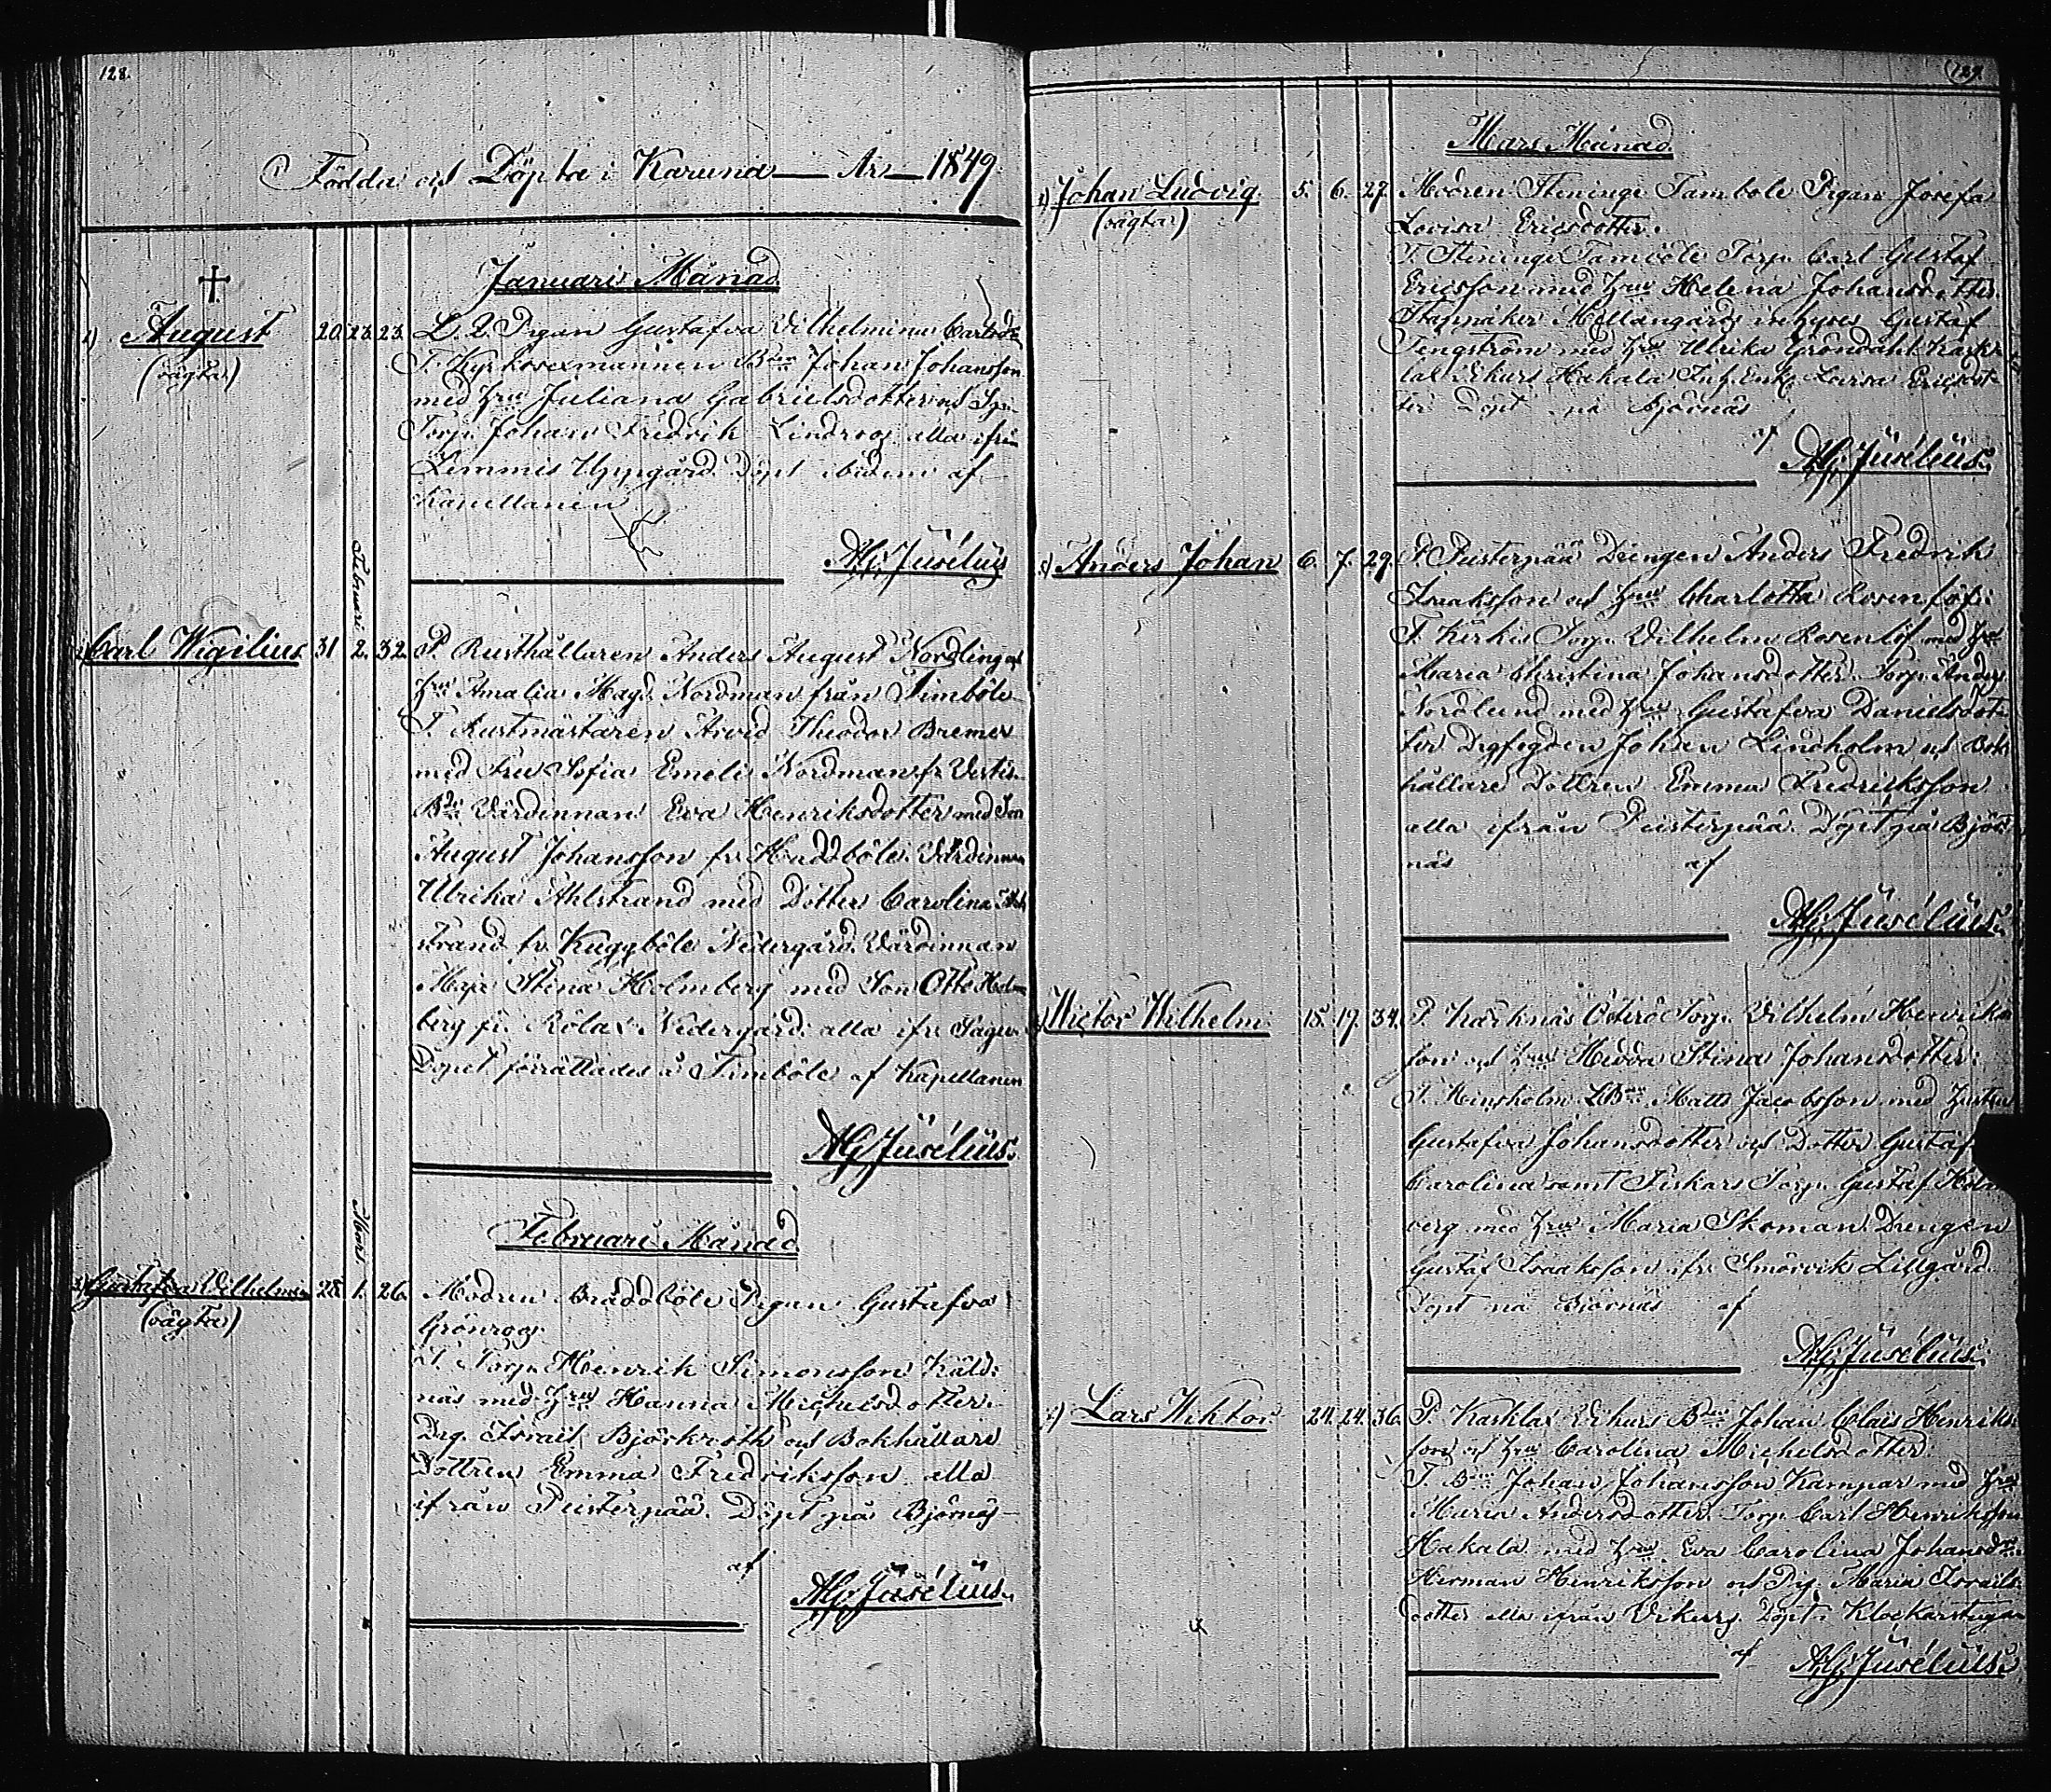 128.
Födda och Döpta i Karuna — År — 1849.
Januari Månad.
1) August 20. 23. 23. Pigan Gustafva Vilhelmina Carlsd:
(oägta) T. Kyrkovexmannen Bdn Johan Johansson
med hru Juliana Gabrielsdotter och
Torp. Johan Fredrik Lindroos alla ifrån
Lemmis Uppgård Döpt ibidem af
Kapellanen
AG Jusélius
Februari
Carl Wigilius 31 2. 32. P. Rusthållaren Anders August Nordling och
hru Amalia Magd. Nordman från Timböle
T. Rustmästaren Arvid Theodor Bremer
med Fru Sofia Emeli Nordman fr. Vestis
Bde Värdinnan Eva Henriksdotter med Son
August Johansson fr. Haddböle. Värdinnan
Ulrika Ahlstrand med Dotter Carolina Ahl
strand fr. Kuggböle Nedergård. Värdinnan
Maja Stina Holmberg med Son Otto Holm
berg fr. Rölax Nedergård: alla ifr. Sagu.
Döpet förrättades å Timböle af Kapellanen
AG Jusélius.
Februari Månad.
Mars
3) Gustafva Vilhelmina 28. 1. 26. Modren Bräddböle Pigan Gustafva
(oägta) Grönroos
T. Torp. Henrik Simonsson Käld:
näs med hru Hanna Michelsdotter.
Drg. Israel Björkroth och Bokhållare
Dottren Emma Fredriksson alla
ifrån Pusterpää. Döpt på Björnäs
af
AG Jusélius.
129.
Mars Månad.
4) Johan Ludvig 5. 6. 27. Modren Steninge Tamböle Pigan Josefa
(oägta) Lovisa Ericsdotter.
T. Steninge Tamböle Torp. Carl Gustaf
Ericsson med hru Helena Johansdotter.
Mellangårds inhyses Gustaf
Tengström med hru Ulrika Gröndahl Kask
lax Ekurs Hakala Inh. Enk. Lovisa Ericsdot
ter Döpt på Björnäs
af
AG Jusélius.
5) Anders Johan 6. 7. 29. P. Pusterpää Drengen Anders Fredrik
Isaaksson och hru Charlotta Rosenlöf.
T. Kirkis Torp. Vilhelm Rosenlöf med hru
Maria Christina Johansdotter. Torp. Anders
Nordlund med hru Gustafva Danielsdot
ter Johan Lindholm och Bok
hållare Dottren Emma Fredriksson
alla ifrån Pusterpää. Döpt på Björ
näs af
AG Jusélius.
Wictor Wilhelm 15. 19. 34. P. Karknäs Torp. Vilhelm Henriks
son och hru Hedda Stina Johansdotter.
T. Matts Jacobsson med hustru
Gustafva Johansdotter och Dotter Gustafva
Carolina samt Fiskars Torp. Gustaf Holm
berg med hru Maria Skoman. Drengen
Gustaf Isaaksson ifr. Smörvik Lillgård.
Döpt på Björnäs af
AG Jusélius.
7) Lars Viktor 24. 24. 36. P. Kasklax Ekurs Bdn Johan Claes Henriks
son och hru Carolina Michelsdotter
T. Bdn Johan Johansson Kampar med hru
Maria Andersdotter. Torp. Carl Henriksson
Hakala med hru Eva Carolina Johansdr
Herman Henriksson och Pig. Maria Israels
dotter alla ifrån Ekurs. Döpt i Klockarstugan
af AG Jusélius.